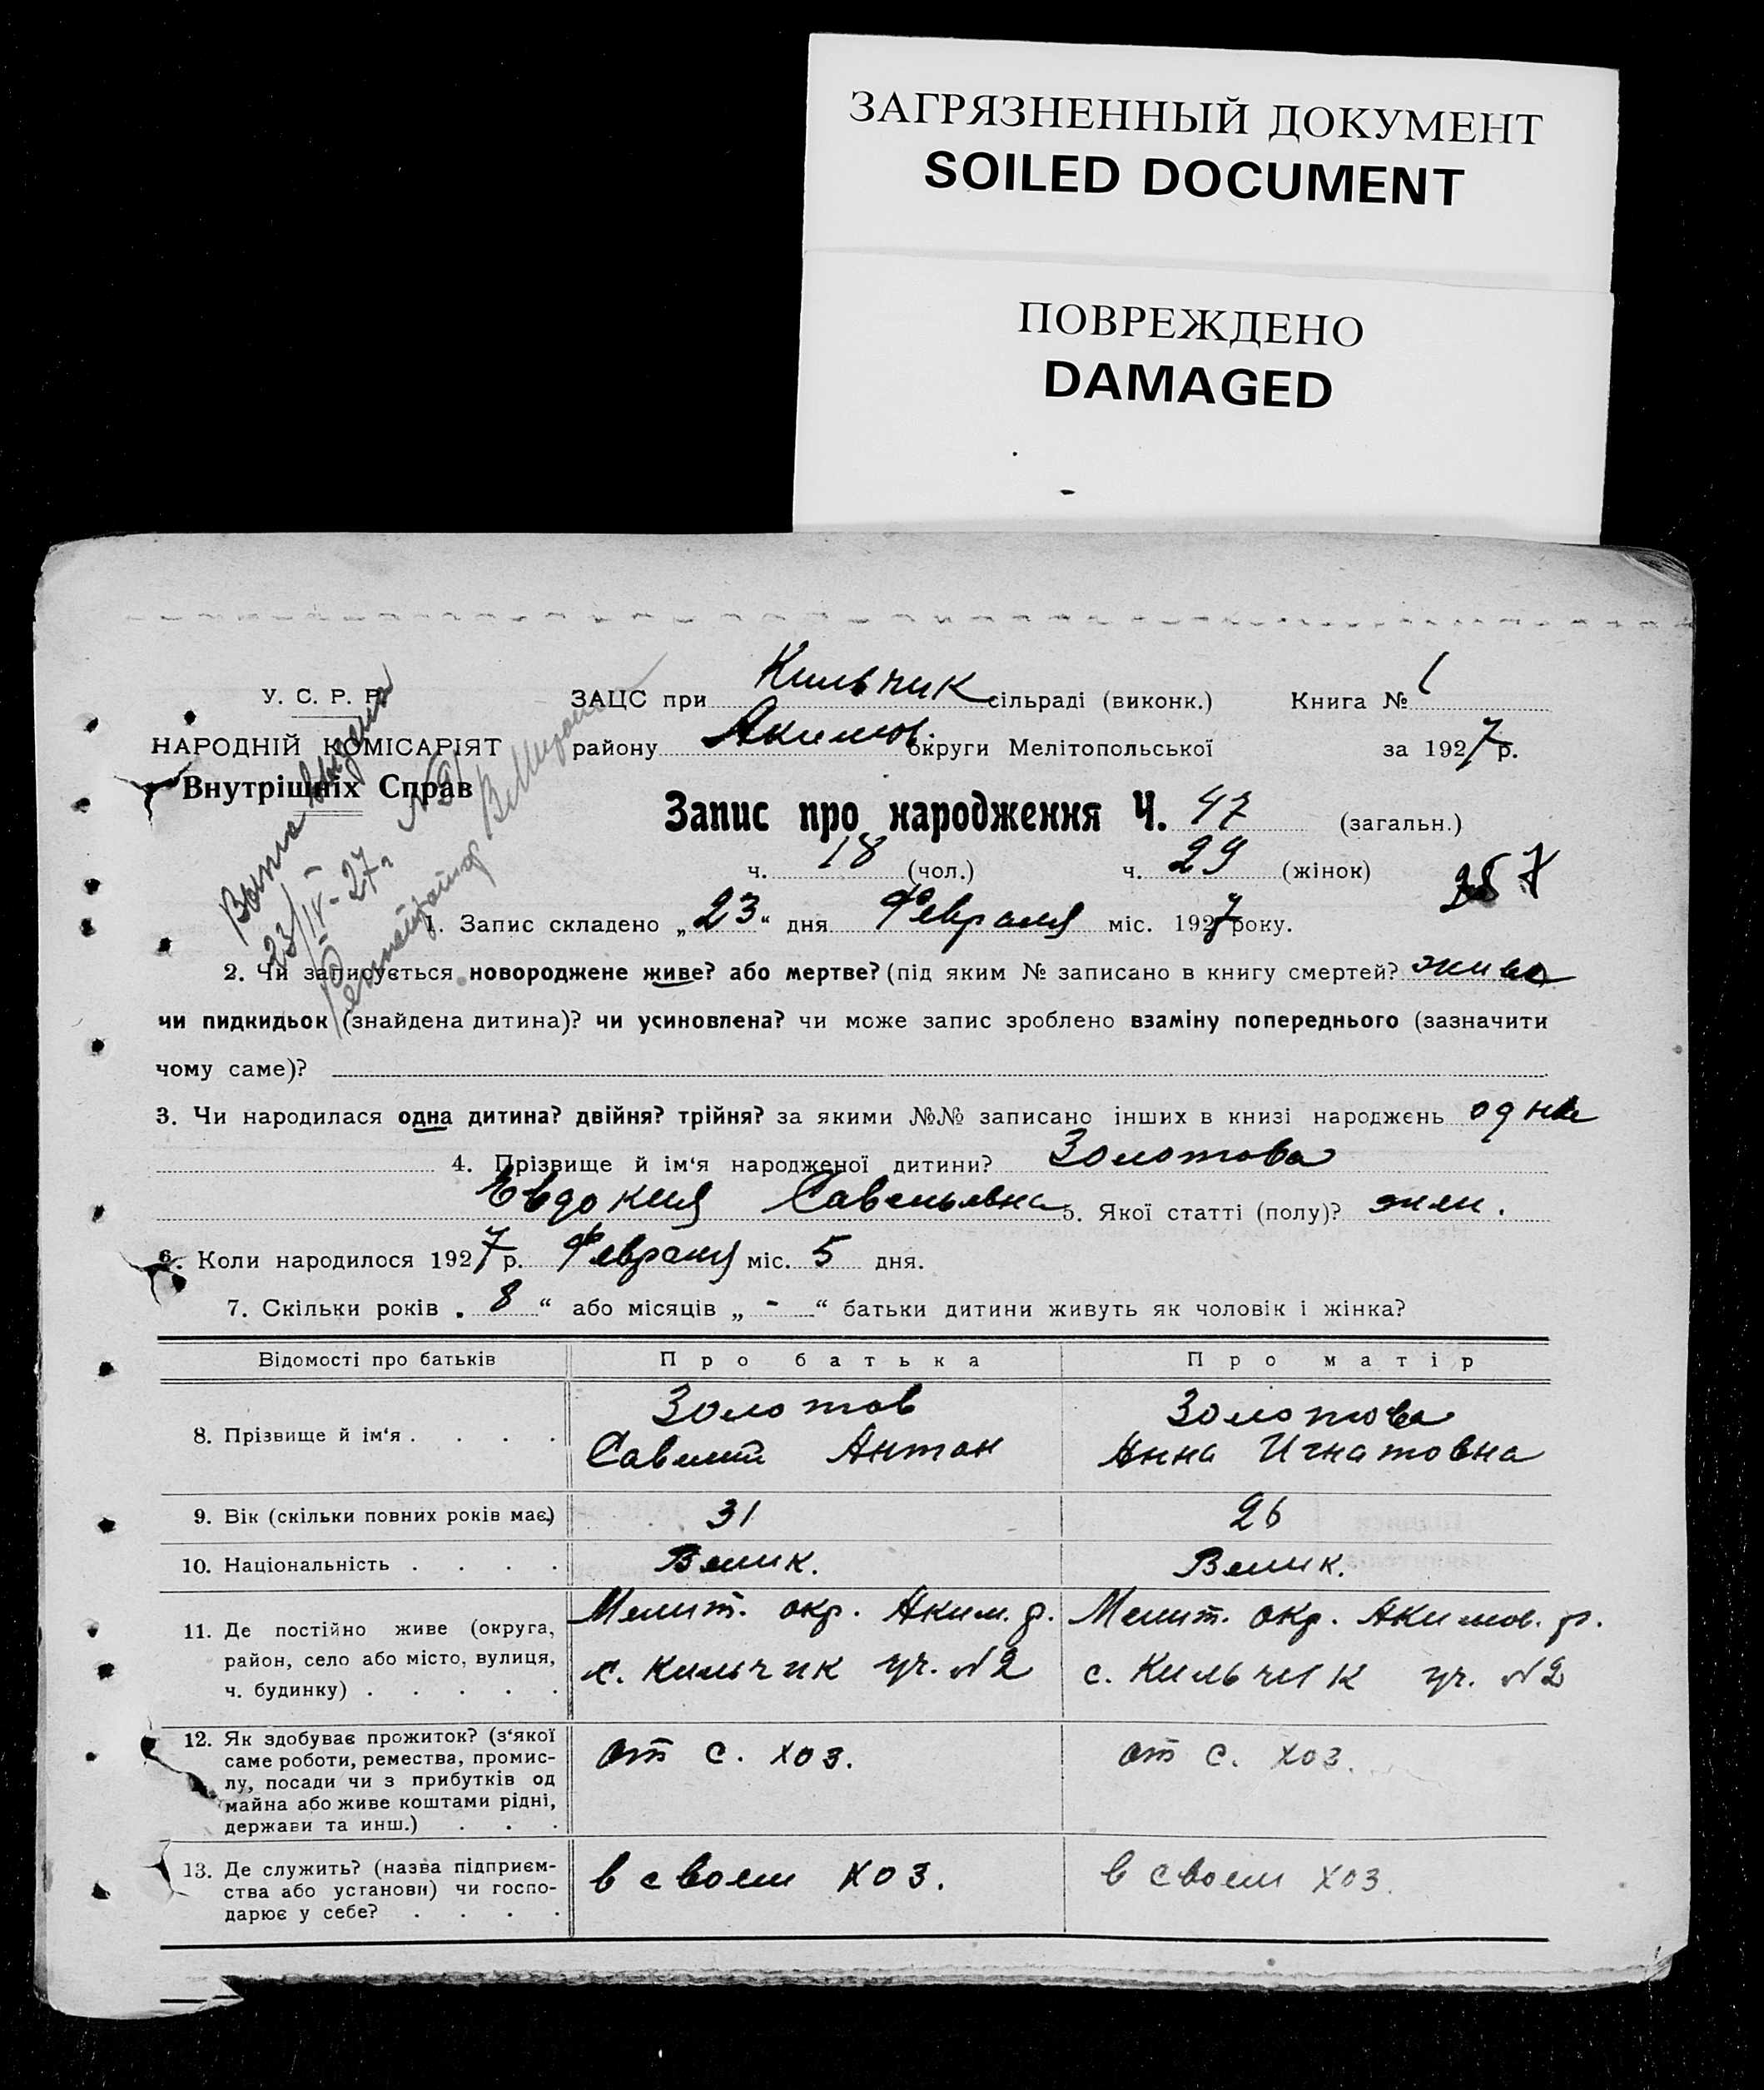 ЗАГРЯЗНЕННЫЙ ДОКУМЕНТ
SOILED DOCUMENT
ПОВРЕЖДЕНО
DAMAGED
У. С. Р. Р.
НАРОДНІЙ КОМІСАРІЯТ
Внутрішніх Справ
ЗАЦС при Кильчик сільраді (виконк.) Книга № 1
району Акимов. округи Мелітопольської за 1927 р.
Запис про народження Ч. 47 (загальн.)
ч. 18 (чол.) ч. 29 (жінок)
23/IV-27г.
1. Запис складено „23“ дня Февраля міс. 1927 року.
2. Чи записується новороджене живе? або мертве? (під яким № записано в книгу смертей? жива
чи пидкидьок (знайдена дитина)? чи усиновлена? чи може запис зроблено взаміну попереднього (зазначити
чому саме)?
3. Чи народилася одна дитина? двійня? трійня? за якими №№ записано інших в книзі народжень одна
4. Прізвище й ім‘я народженої дитини? Золотова
Евдокия Савельевна 5. Якої статті (полу)? жен.
6. Коли народилося 1927 р. Февраля міс. 5 дня.
7. Скільки років „8“ або місяців „-“ батьки дитини живуть як чоловік і жінка?
Відомості про батьків Про батька Про матір
8. Прізвище й ім‘я . . . . Золотов Золотова
Савелий Антон Анна Игнатовна
9. Вік (скільки повних років має) 31 26
10. Національність . . . . Велик. Велик.
11. Де постійно живе (округа, район, село або місто, вулиця, ч. будинку) . . . . .
Мелит. окр. Аким. р. Мелит. окр. Акимов. р.
с. Кильчик уч. №2 с. Кильчик уч. №2
12. Як здобуває прожиток? (з‘якої
саме роботи, ремества, промис-
лу, посади чи з прибутків од
майна або живе коштами рідні,
держави та инш.) . . .
от с. хоз. от с. хоз.
13. Де служить? (назва підприєм-
ства або установи) чи госпо-
дарює у себе? . . . .
в своем хоз. в своем хоз.